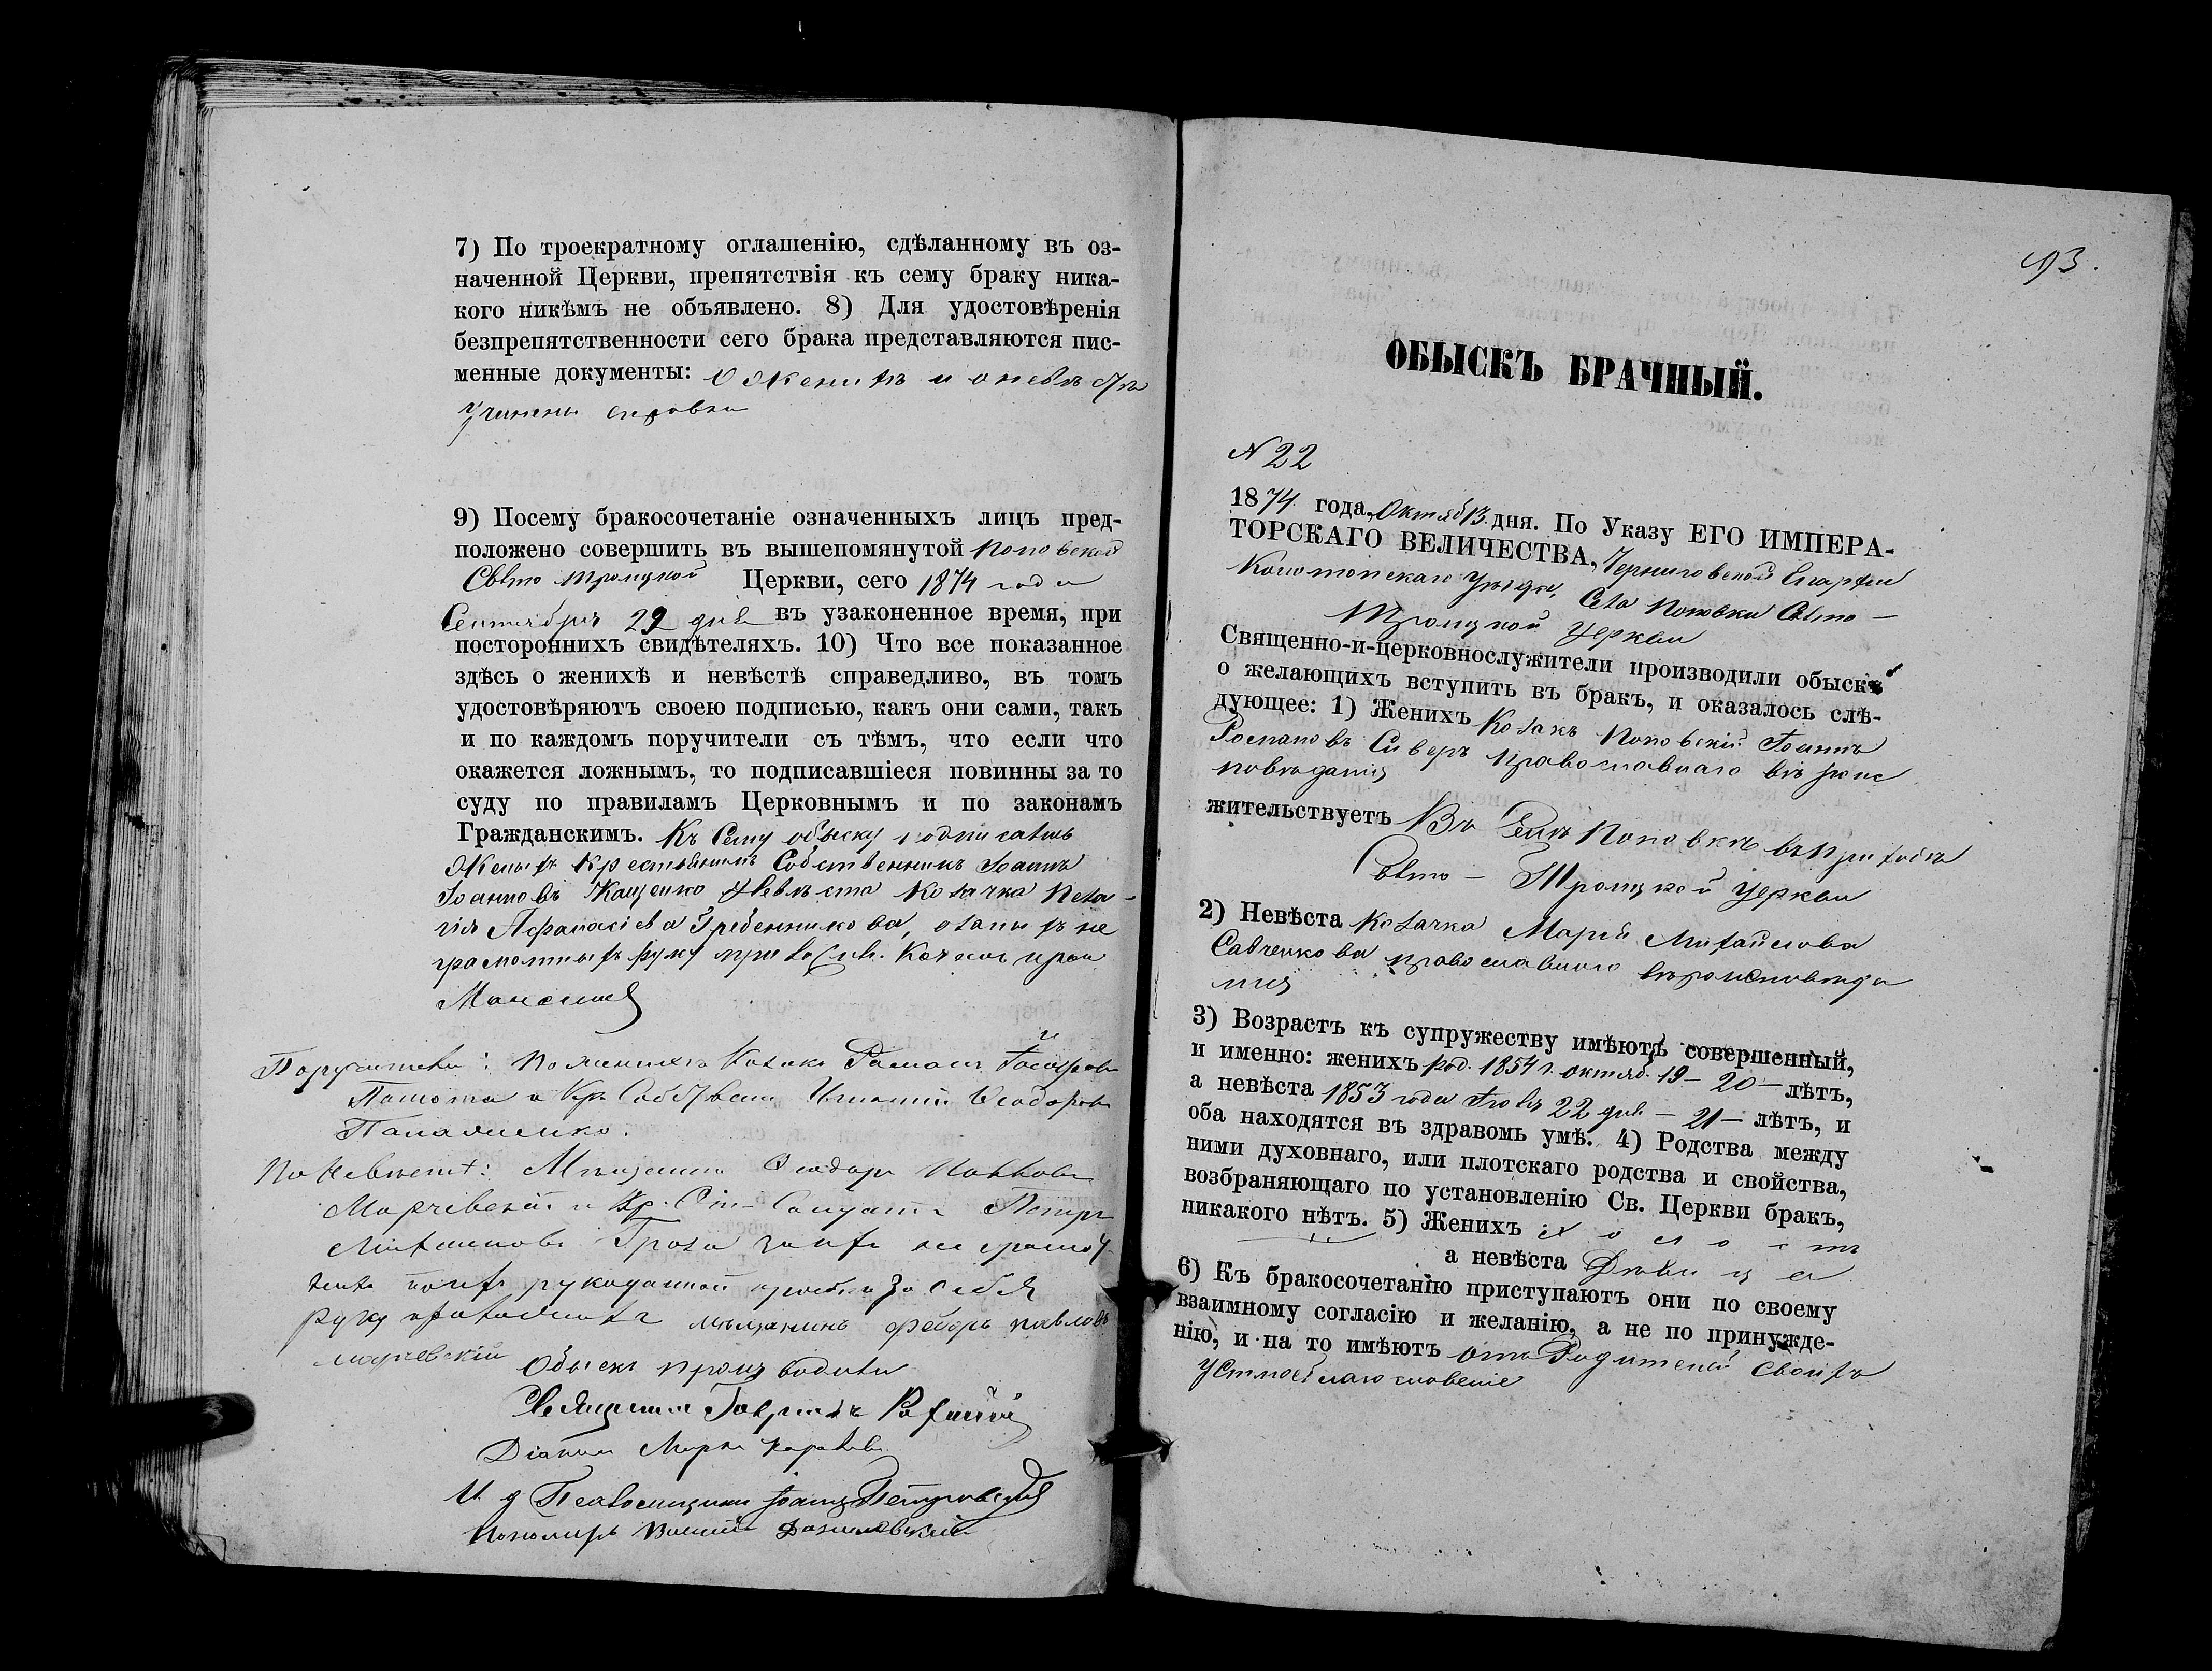 7) По троекратному оглашенію, сдѣланному въ оз-
наченной Церкви, препятствія къ сему браку ника-
кого никѣмъ не объявлено. 8) Для удостовѣренія
безпрепятственности сего брака представляются пис-
менные документы: О женихѣ и о невѣстѣ
учинены справки
9) Посему бракосочетаніе означенныхъ лицъ пред-
положено совершить въ вышепомянутой Поповской
Свѣто Троицкой Церкви, сего 1874 года
Сентября 29 дня въ узаконенное время, при
постороннихъ свидѣтеляхъ. 10) Что все показанное
здѣсь о женихѣ и невѣстѣ справедливо, въ томъ
удостовѣряютъ своею подписью, какъ они сами, такъ
и по каждомъ поручители съ тѣмъ, что если что
окажется ложнымъ, то подписавшіеся повинны за то
суду по правиламъ Церковнымъ и по законамъ
Гражданскимъ. Къ Сему обыску подписались
Женихъ Крестьянинъ Собственникъ Іоаннъ
Іоанновъ Кащенко Невѣста Козачка Пела-
гія Афанасіева Гребенникова, а за нихъ не
грамотныхъ руку приложилъ
Поручители: По женихѣ Козакъ Романъ
Феодоровъ
По Невѣстѣ: Мѣщанинъ Феодоръ Павловъ
Марчевскій и Кр. Петръ
Михайловъ за нихъ не грамот-
руку приложилъ мѣщанинъ Федоръ павловъ
марчевскій
Обыскъ производили
Священникъ Гавріилъ
Діаконъ Марко
И. д Псаломщика Іоаннъ Петровскій
Пономарь
93.
ОБЫСКЪ БРАЧНЫЙ.
N 22
1874 года, Октяб 13 дня. По Указу ЕГО ИМПЕРА-
ТОРСКАГО ВЕЛИЧЕСТВА, Черниговской Епархіи
Конотопскаго уѣзда, Села Поповки Свѣто-
Троицкой Церкви
Священно-и-церковнослужители производили обыскъ
о желающихъ вступить въ бракъ, и оказалось слѣ-
дующее: 1) Женихъ Козакъ Поповскій Іоаннъ
Романовъ Сиверъ православнаго вѣроис
повѣданія
жительствуетъ Въ Селѣ Поповкѣ въ приходѣ
Свѣто-Троицкой Церкви
2) Невѣста Козачка Марія Михайлова
Савченкова православнаго вѣроисповѣда
нія
3) Возрастъ къ супружеству имѣютъ совершенный,
и именно: женихъ род. 1854 г. октяб. 19 - 20 - лѣтъ,
а невѣста 1853 года Іюля 22 дня - 21 - лѣтъ, и
оба находятся въ здравомъ умѣ. 4) Родства между
ними духовнаго, или плотскаго родства и свойства,
возбраняющаго по установленію Св. Церкви бракъ,
никакого нѣтъ. 5) Женихъ холостъ
а невѣста Дѣвица
6) Къ бракосочетанію приступаютъ они по своему
взаимному согласію и желанію, а не по принужде-
нію, и на то имѣютъ отъ Родителей своихъ
Устное благословеніе